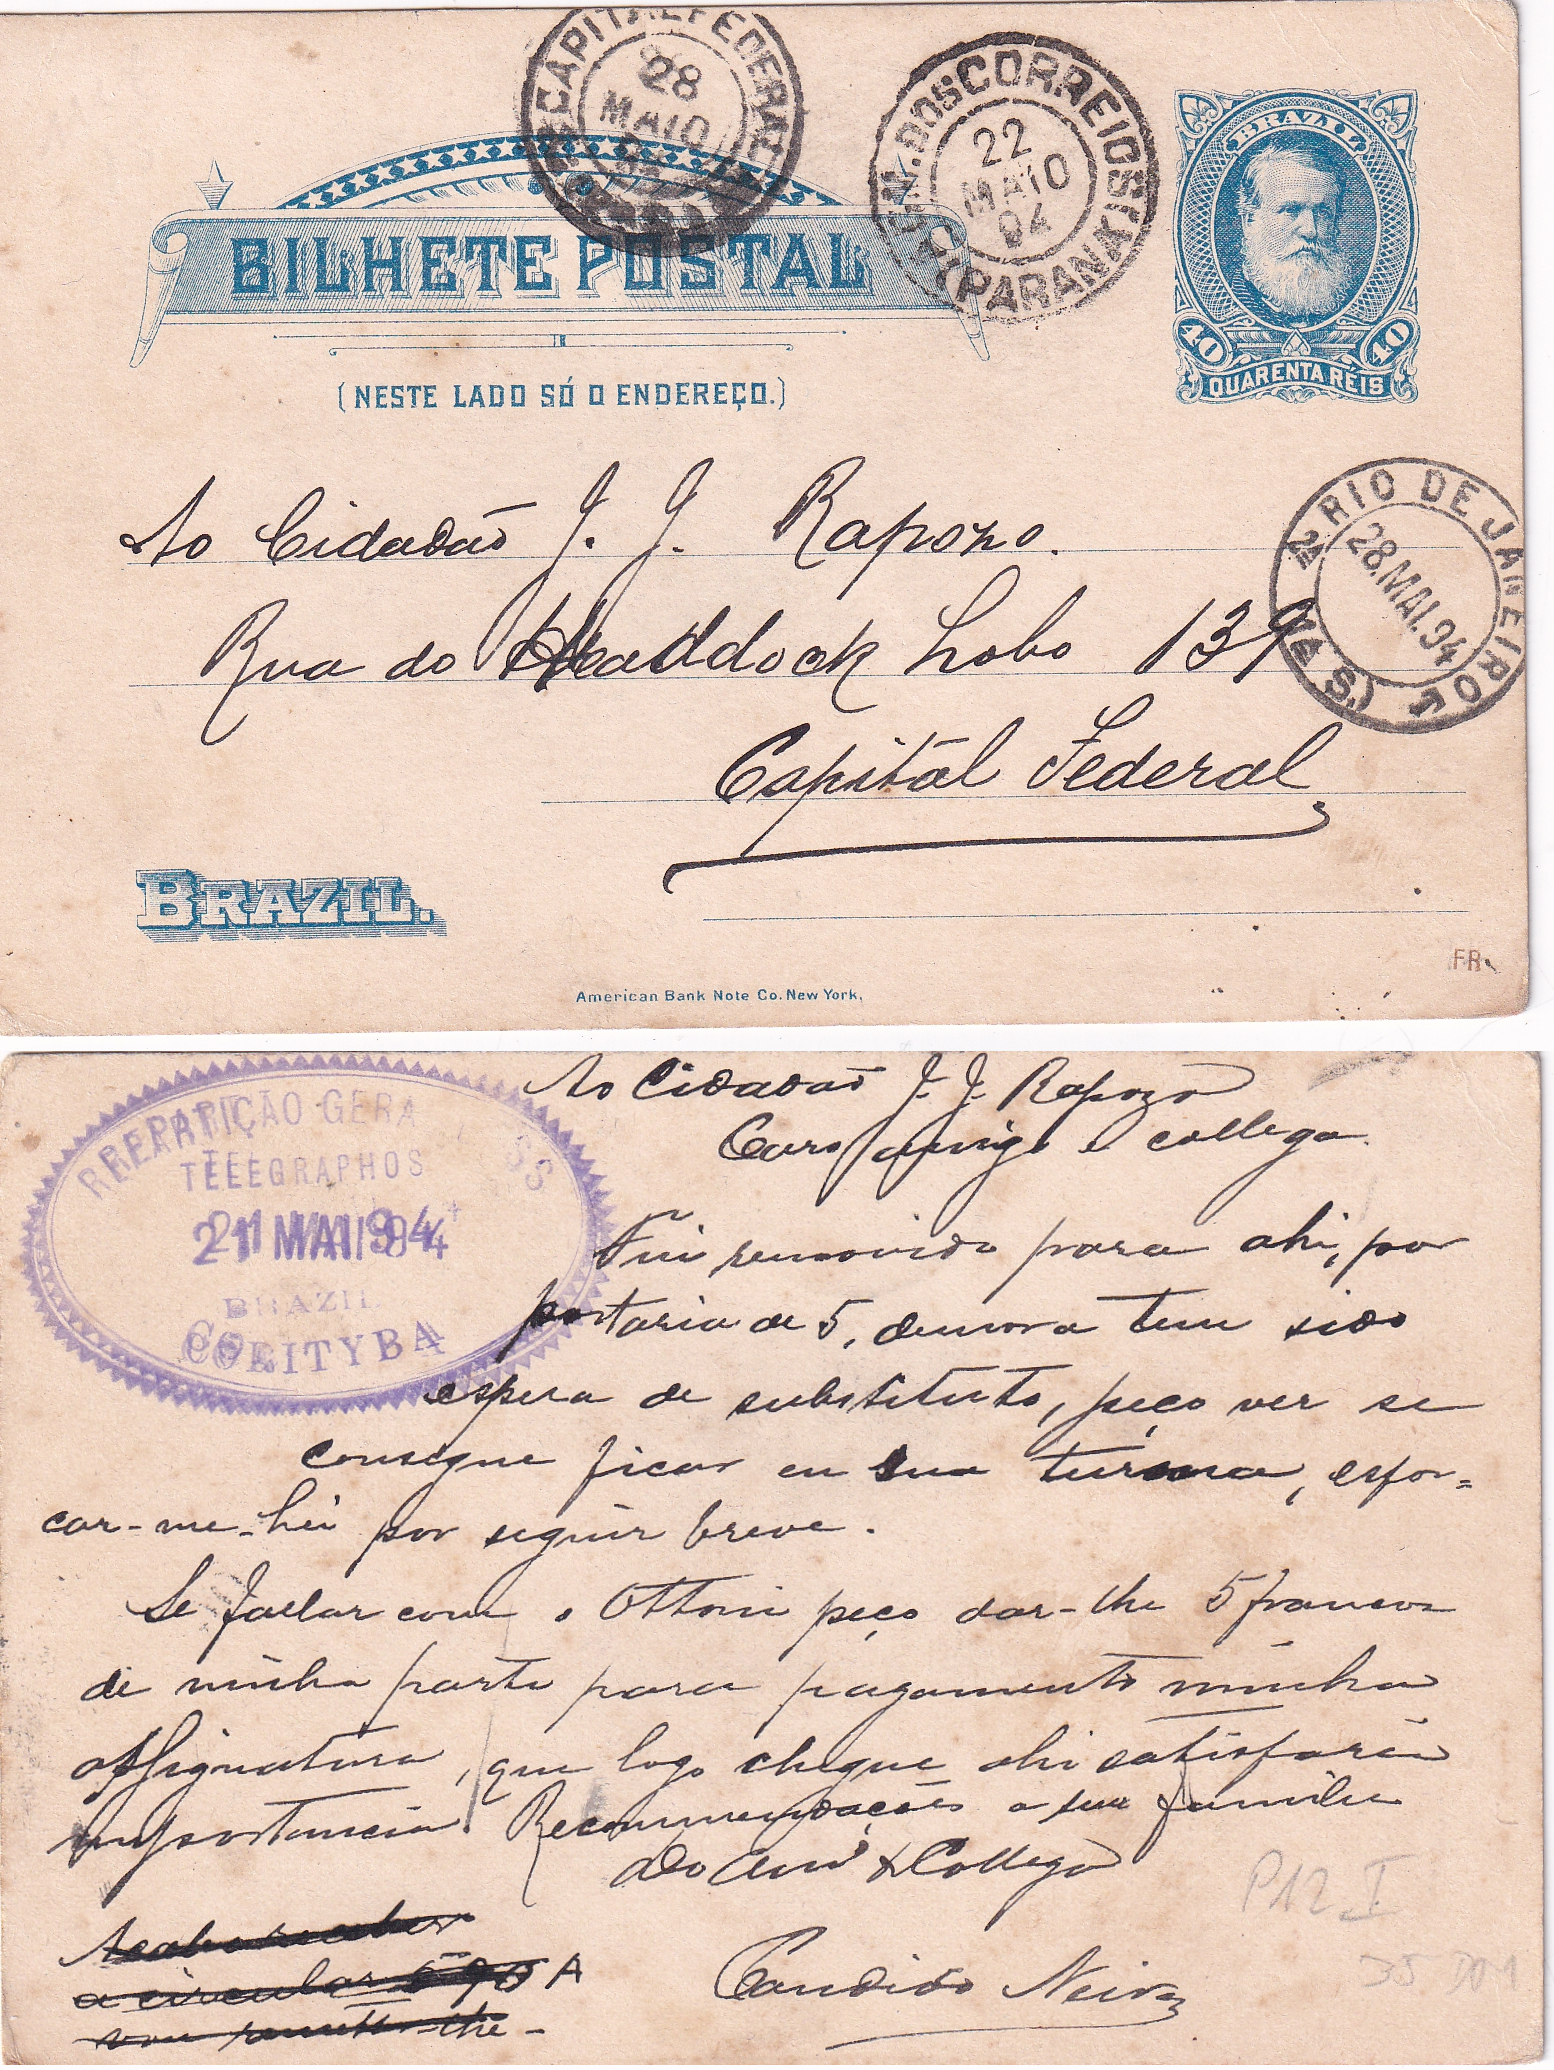 CAPITAL FEDERAL
28
MAIO
ADM. DOS CORREIOS
22
MAIO
94
PARANÁ
BRAZIL
40 40
QUARENTA RÉIS
BILHETE POSTAL
(NESTE LADO SÓ O ENDEREÇO.)
Ao Cidadão J. J. Rapozo.
Rua do Haddock Lobo 139
Capital Federal
RIO DE JANEIRO
28.MAI.94
BRAZIL.
FR
American Bank Note Co. New York.
REPARTIÇÃO GERA
TELEGRAPHOS
21 MAI 94
BRAZIL
CORITYBA
Ao Cidadão J. J. Rapozo
Caro amigo e collega
Fui removido para ahi, por
portaria de 5, demora tem sido
espera de substituto, peço ver se
consegue ficar em sua turma, esfor=
car-me-hei por seguir breve.
Se fallar com o Ottoni peço dar-lhe 5 francos
de minha parte para pagamento minha
assignatura, que logo chegue ahi satisfarei
importancia. Recommendações a sua familia
Do Amº & Collega
Candido Neiva
Acabo receber
a circular 690 A
vou remetter-lhe -
P12 I